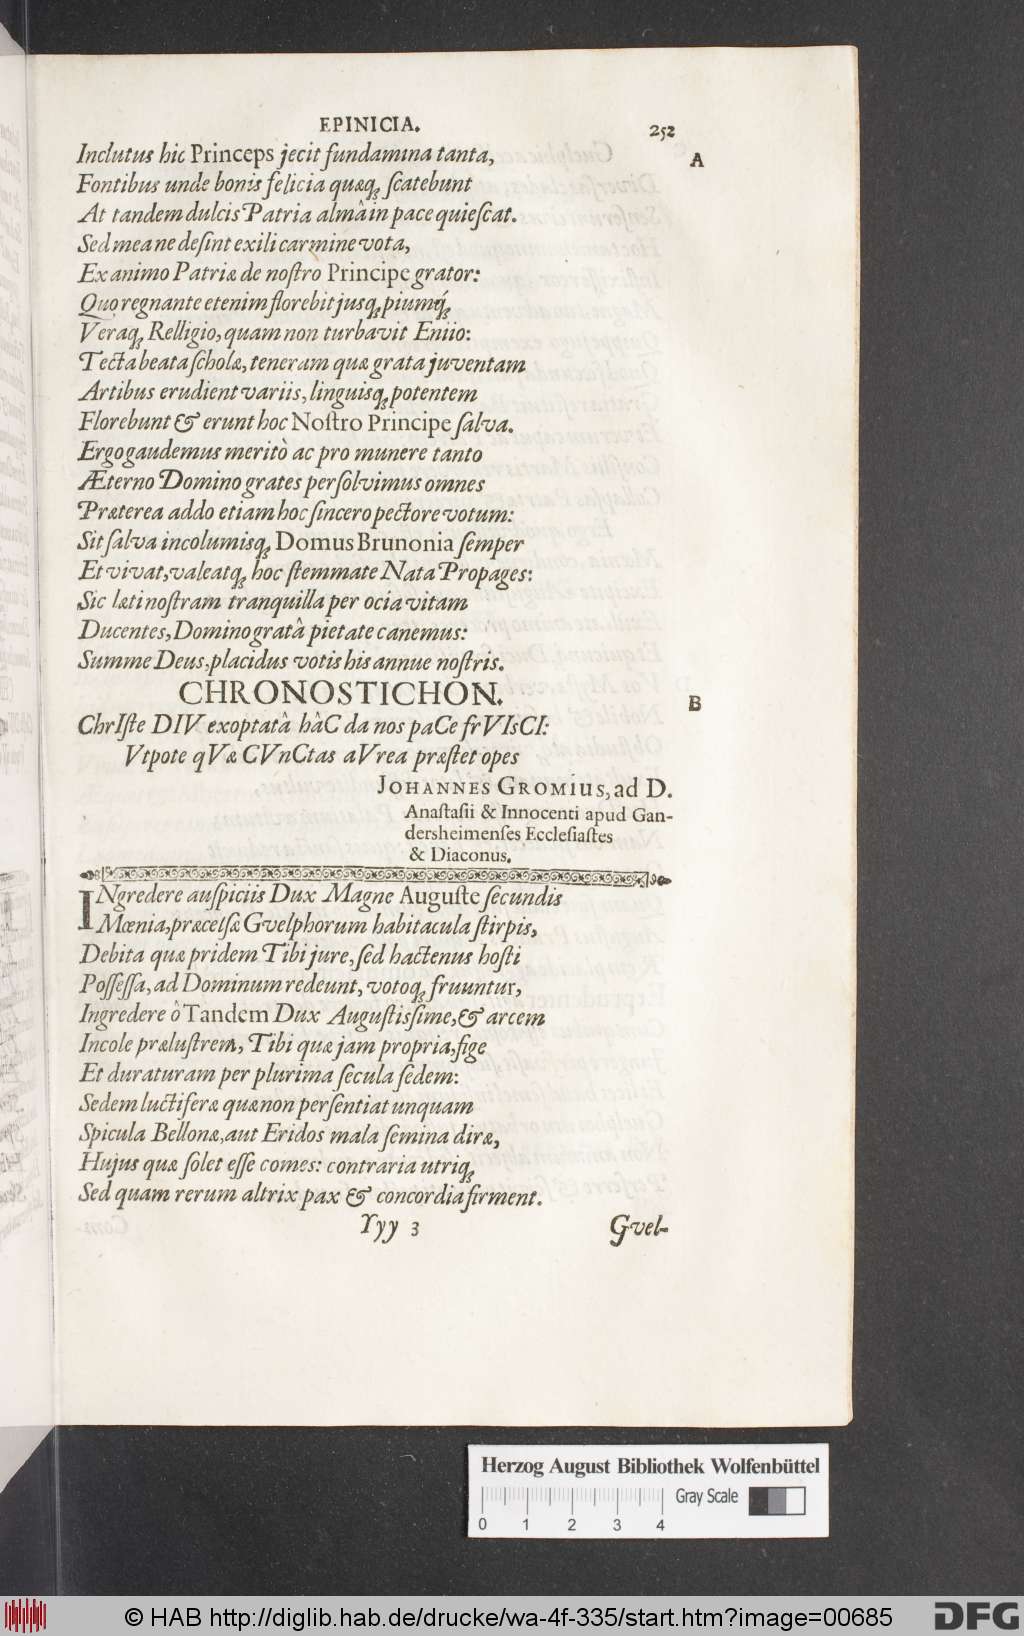 EPINICIA. 252
Inclutus hic Princeps jecit fundamina tanta, A
Fontibus unde bonis felicia quæq; scatebunt
At tandem dulcis Patria almâ in pace quiescat.
Sed mea ne desint exili carmine vota,
Ex animo Patriæ de nostro Principe grator:
Quo regnante etenim florebit jusq; piumq́;
Veraq; Relligio, quam non turbavit Eniio:
Tecta beata scholæ, teneram quæ grata juventam
Artibus erudient variis, linguisq; potentem
Florebunt & erunt hoc Nostro Principe salva.
Ergo gaudemus meritò ac pro munere tanto
Æterno Domino grates persolvimus omnes
Præterea addo etiam hoc sincero pectore votum:
Sit salva incolumisq; Domus Brunonia semper
Et vivat, valeatq; hoc stemmate Nata Propages:
Sic læti nostram tranquilla per ocia vitam
Ducentes, Domino gratâ pietate canemus:
Summe Deus, placidus votis his annue nostris.
CHRONOSTICHON. B
ChrIste DIV exoptatâ hâC da nos paCe frVIsCI:
Vtpote qVæ CVnCtas aVrea præstet opes
JOHANNES GROMIUS, ad D.
Anastasii & Innocenti apud Gan-
dersheimenses Ecclesiastes
& Diaconus.
INgredere auspiciis Dux Magne Auguste secundis
Mœnia, præcelsæ Gvelphorum habitacula stirpis,
Debita quæ pridem Tibi jure, sed hactenus hosti
Possessa, ad Dominum redeunt, votoq; fruuntur,
Ingredere ô Tandem Dux Augustissime, & arcem
Incole prælustrem, Tibi quæ jam propria, fige
Et duraturam per plurima secula sedem:
Sedem luctiferæ quæ non persentiat unquam
Spicula Bellonæ, aut Eridos mala semina diræ,
Hujus quæ solet esse comes: contraria utriq;
Sed quam rerum altrix pax & concordia firment.
Yyy 3 Gvel-
Herzog August Bibliothek Wolfenbüttel
Gray Scale
0 1 2 3 4
© HAB http://diglib.hab.de/drucke/wa-4f-335/start.htm?image=00685 DFG